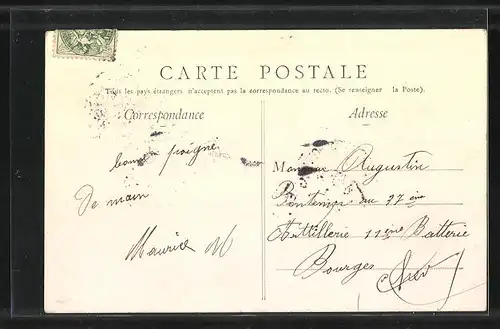 CARTE POSTALE
Tous les pays étrangers n'acceptent pas la correspondance au recto. (Se renseigner à la Poste).
Correspondance
Adresse
bonne poignée
De main
Maurice M
Monsieur Augustin
Printemps au 37 ème
Artillerie 11ème Batterie
Bourges